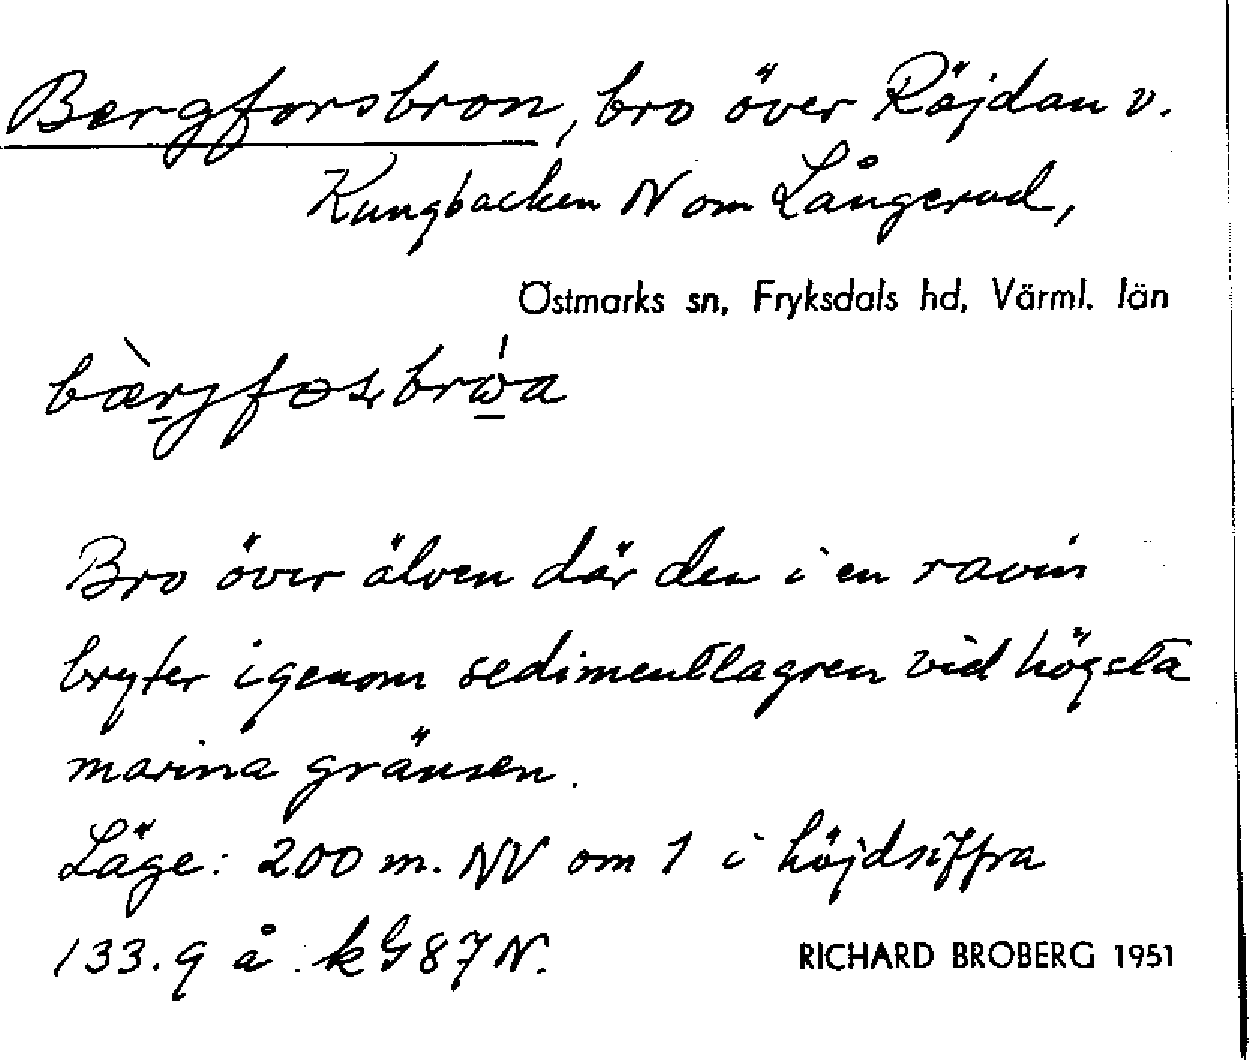 Bergforsbron, bro över Röjdan v.
Kungbacken N om Långerud,
Östmarks sn, Fryksdals hd, Värml. län
Bro över älven där den i en ravin
bryter igenom sedimentlagren vid högsta
marina gränsen.
Läge: 200 m. NV om 1 i höjdsiffra
133.9 å kG87N.
RICHARD BROBERG 1951